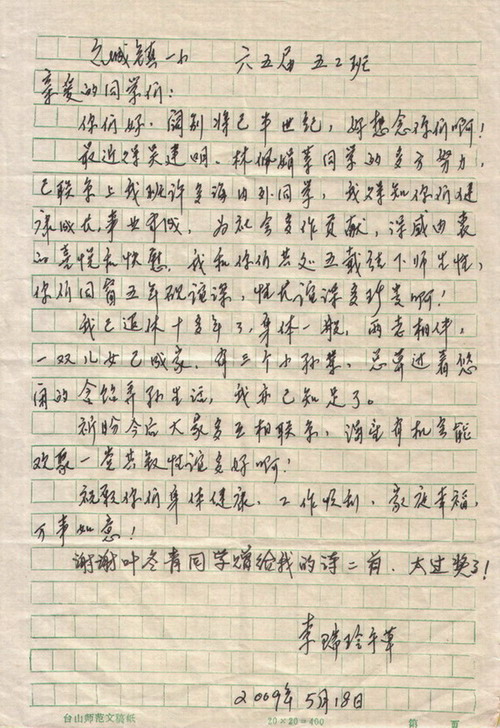 之城镇一小 六五届 五2班
亲爱的同学们:
你们好,阔别将已半世纪,好想念你们啊!
最近烽吴建明、林佩娟等同学的多方努力,
已联系上我班许多海内外同学,我烽知你们健
康成长事业有成,为社会多作贡献,深感由衷
的喜悦和快慰。我和你们共处五载结下师生情,
你们同窗五年砚谊深,情长谊深多珍贵啊!
我已退休十多年了,身体一般,两老相伴,
一双儿女已成家,有三个小孙辈,总算过着悠
闲的含饴弄孙生活,我亦已知足了。
祈盼今后大家多互相联系,渴望有机会能
欢聚一堂共叙情谊多好啊!
祝愿你们身体健康,工作顺利,家庭幸福,
万事如意!
谢谢叶冬青同学赠给我的诗二首,太过奖了!
李瑞玲
2009年5月18日
台山师范文稿纸 20×20=400 第 页